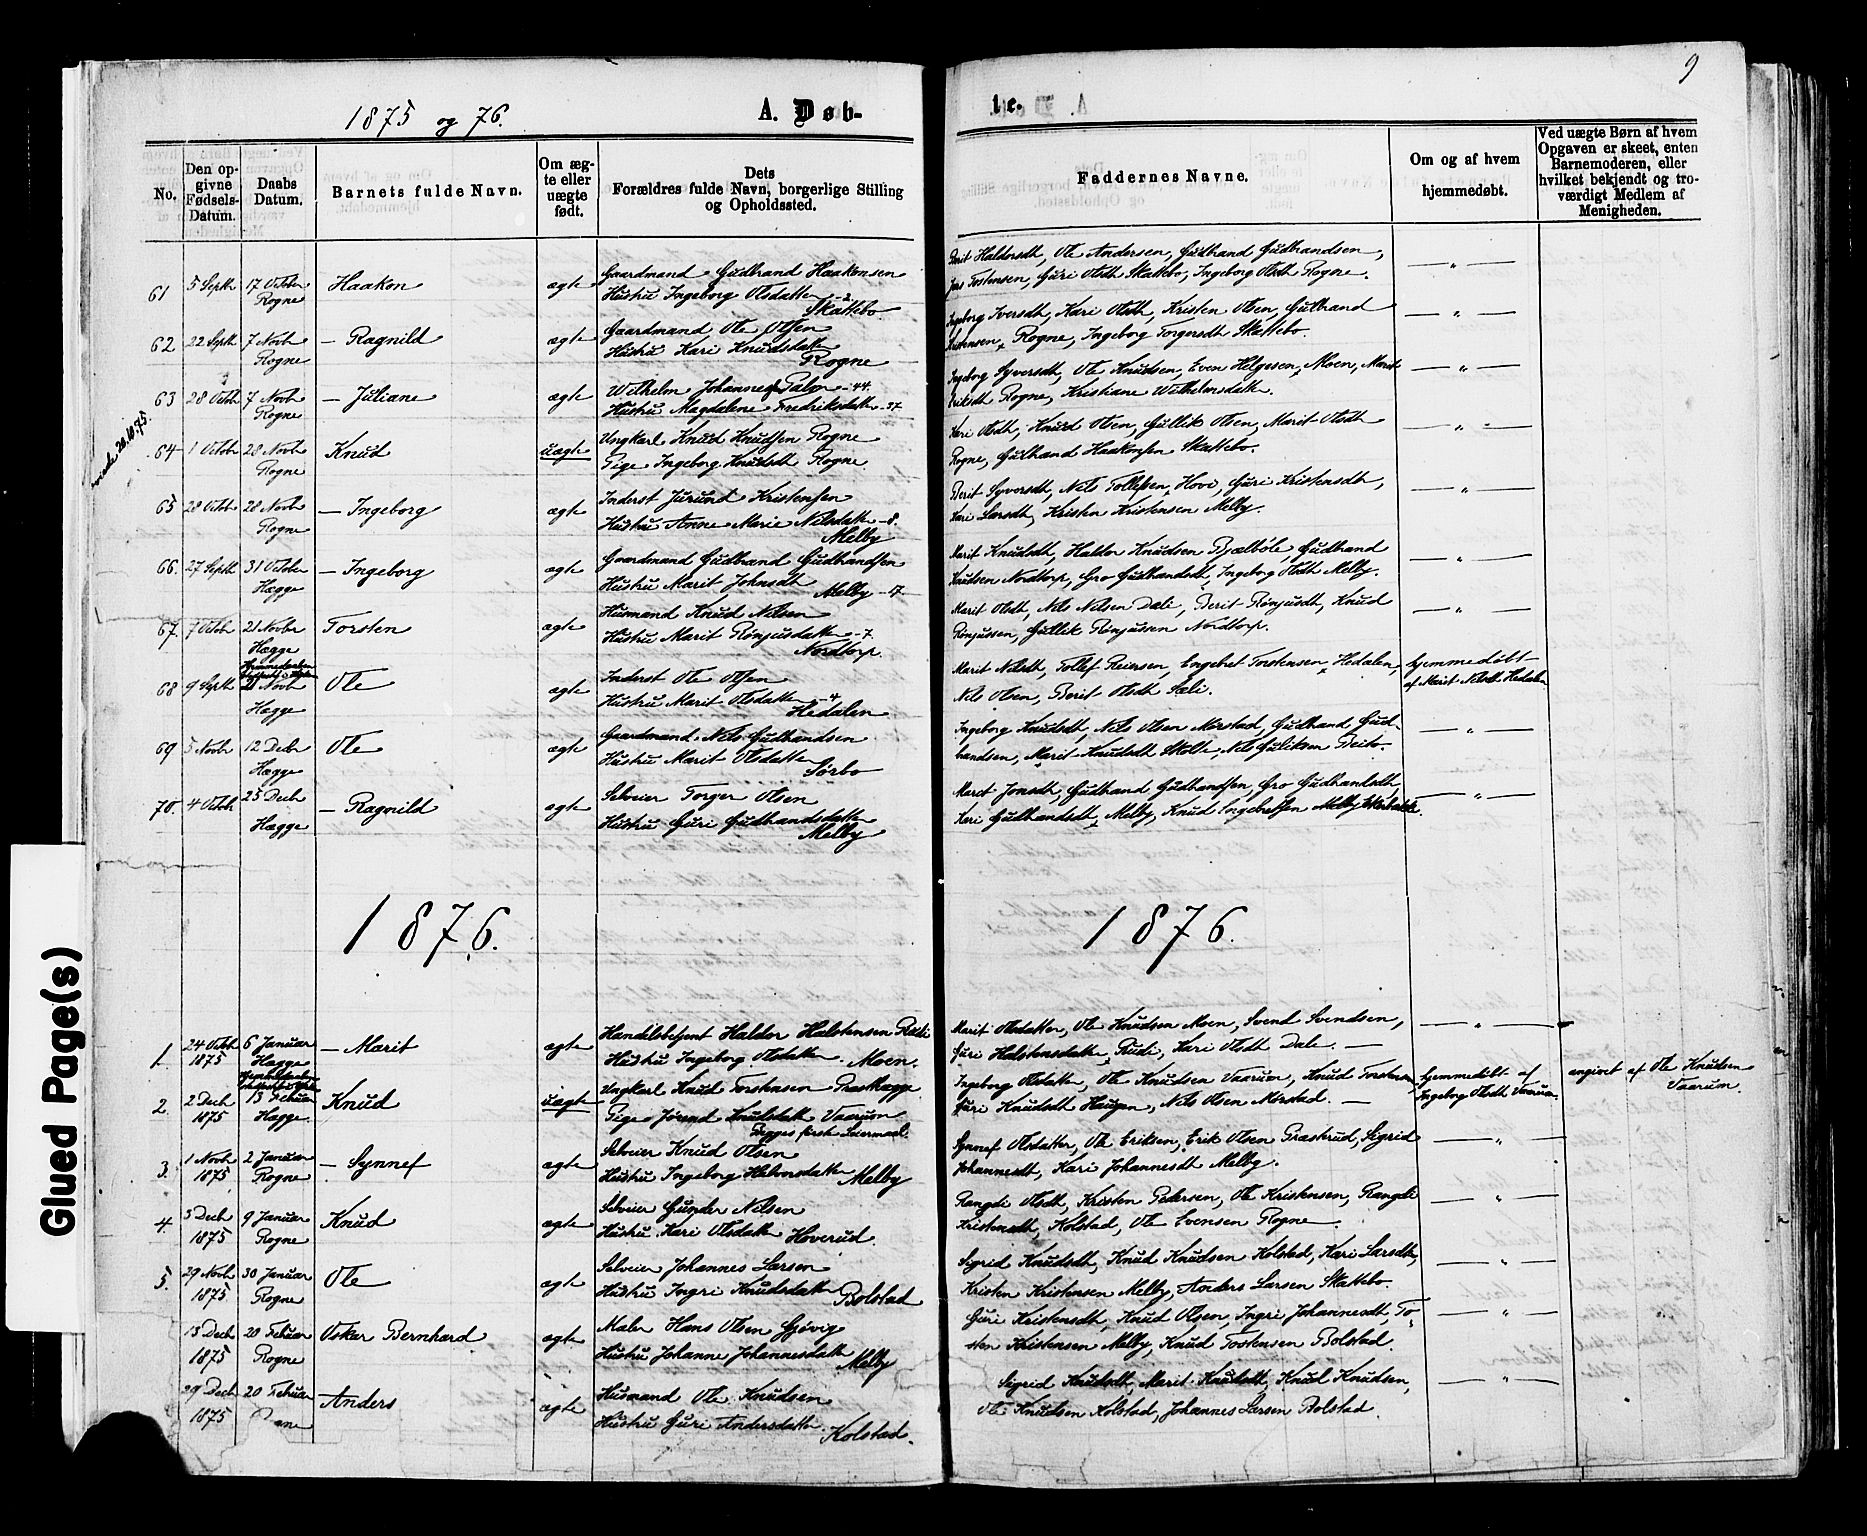 1875 og 76.
A. Døb-
1 c.
9
No.
Den op-
givne
Fødsels-
Datum.
Daabs
Datum.
Barnets fulde Navn.
Om æg-
te eller
uægte
født.
Dets
Forældres fulde Navn, borgerlige Stilling
og Opholdssted.
Faddernes Navne.
Om og af hvem
hjemmedøbt.
Ved uægte Børn af hvem
Opgaven er skeet, enten
Barnemoderen, eller
hvilket bekjendt og tro-
værdigt Medlem af
Menigheden.
61 5 Septb 17 Octobr Haakon ægte Gaardmand Gudbrand Haakensen
Rogne Hustru Ingeborg Olsdatter
Skattebo
Berit Haldorsdt, Ole Andersen, Gudbrand Gudbrandsen,
Torstensen, Guri Olsdt Skattebo, Ingeborg Olsdt Rogne.
62 22 Septb 7 Novb – Ragnild ægte Gaardmand Ole Olsen
Rogne Hustru Kari Knudsdatter
Rogne
Ingeborg Iversdt, Kari Olsdt, Kristen Olsen, Gulbrand
Rogne, Ingeborg Torgersdt Skattebo.
63 28 Octob 7 Novb – Juliane ægte Wilhelm Johannes Palm – 44.
Rogne Hustru Magdalene Fredriksdatter – 37
Ingeborg Syversdt, Ole Knudsen, Even Helgesen, Moen, Marit
Eriksdt Rogne, Kristiane Wilhelmsdatt.
20.10.75.
64 1 Octobr 28 Novb Knud uægte Ungkarl Knud Knudsen Rogne
Rogne Pige Ingeborg Knudsdt Rogne
Kari Olsdt, Knud Olsen, Gullik Olsen, Marit Olsdt
Rogne, Gulbrand Haakensen Skattebo.
65 28 Octob 28 Novb – Ingeborg ægte Inderst Jørund Kristensen
Rogne Hustru Anne Marie Nilsdatter – 8.
Melby
Berit Syversdt, Nils Tollefsen, Hove, Guri Kristensdt,
Kari Larsdt, Kristen Kristensen Melby.
66. 27 Septb 31 Octobr – Ingeborg ægte Gaardmand Gudbrand Gudbrandsen
Hegge Hustru Marit Johnsdt
Melby – 17
Marit Knudsdt, Haldor Knudsen Bjølbøle, Gudbrand
Knudsen Nordtorp, Gro Gudbrandsdt, Ingeborg Olsdt Melby.
67. 7 Octob 21 Novbr Torsten ægte Husmand Knud Nilsen
Hegge Hustru Marit Rønjusdatter – 7
Nordtorp.
Marit Olsdt, Nils Nilsen Dale, Berit Rønjusdt, Knud
Rønjussen, Gullik Rønjussen Nordtorp.
68 9 Septb 21 Novb Ole ægte Inderst Ole Olsen
Hegge Hustru Marit Olsdatter – 4
Hedalen
Marit Nilsdt, Tollef Reiersen, Engebret Torstensen, Hedalen,
Nils Olsen, Berit Olsdt Sæli.
hjemmedøbt
af Marit Nilsdt Hedalen
69 5 Novb 12 Decbr Ole ægte Gaardmand Nils Gudbrandsen
Hegge Hustru Marit Olsdatter
Sørbo
Ingeborg Knudsdt, Nils Olsen Mørstad, Gudbrand Gud-
brandsen, Marit Knudsdt Stolte, Nils Guliksen Beito.
70. 4 Octob 25 Decb – Ragnild ægte Selveier Torger Olsen
Hegge Hustru Guri Gudbrandsdatter
Melby
Maret Jonsdt, Gudbrand Gudbrandsen, Gro Gudbrandsdt,
Kari Gudbrandsdt, Melby, Knud Ingebretsen
1876.
1876.
1. 24 Octob 6 Januar – Marit ægte Handelsbetjent Haldor Halstensen Rudi
1875 Hegge Hustru Ingeborg Olsdatter Moen.
Marit Olsdatter, Ole Knudsen Moen, Svend Svendsen,
Guri Halstensdatter, Rudi, Kari Olsdt Dale. –
2. 2 Decb 13 Februar Knud uægte Ungkarl Knud Torstensen Præsthegge
1875 Hegge. Pige Jørend Knudsdatt Vaarum
Begges første Leiermaal.
Ingeborg Olsdatter, Ole Knudsen Vaarum, Knud Torstensen
Guri Knudsdt Haugen, Nils Olsen Mørstad. –
hjemmedøbt af
Ingeborg Olsdt Vaarum.
angivet af Ole Knudsen
Vaarum.
3. 1 Novb 2 Januar – Synnef ægte Selveier Knud Olsen
1875 Rogne Hustru Ingeborg Halvorsdatter Melby
Synnef Olsdatter, Ole Eriksen, Erik Olsen Præstrud, Sigrid
Johannesdt, Kari Johannesdt Melby.
4. 5 Decb 9 Januar Knud ægte Selveier Gunder Nilsen
1875 Rogne Hustru Kari Olsdatter Hoverud.
Rangdi Olsdt, Kristen Pedersen, Ole Kristensen, Rangdi
Kristensdt, Kolstad, Ole Evensen Rogne.
5. 29 Novb 30 Januar Ole ægte Selveier Johannes Larsen
1875 Rogne Hustru Ingri Knudsdatter Bolstad
Sigrid Knudsdt, Knud Knudsen Kolstad, Kari Larsdt,
Kristen Kristensen Melby, Anders Larsen Skattebo.
13 Decb 20 Febuar Oskar Bernhard ægte Maler Hans Olsen Gjøvig
1875 Rogne Hustru Johanne Johannesdatt Melby
Guri Kristensdt, Knud Olsen, Ingri Johannesdt, To-
sten Kristensen Melby, Knud Torstensen Bolstad.
29 Decb 20 Febuar Anders ægte Husmand Ole Knudsen
1875 Hustru Guri Andersdatter Kolstad.
Sigrid Knudsdt, Marit Knudsdt, Knud Knudsen,
Ole Knudsen Kolstad, Johannes Larsen Bolstad.
Glued Page(s)